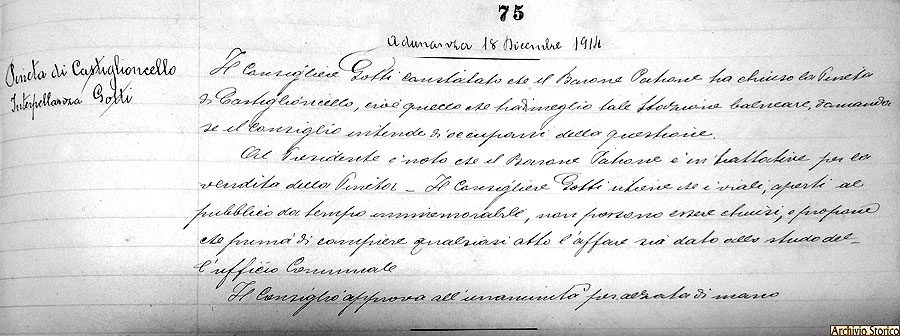 75
Adunanza 18 Dicembre 1914
Pineta di Castiglioncello
Interpellanza Gotti
Il Consigliere Gotti constatato che il Barone Patrone ha chiuso la Pineta
di Castiglioncello, cioè quello che ha di meglio tale stazione balneare, domanda
se il Consiglio intende di occuparsi della questione.
Al Presidente è noto che il Barone Patrone è in trattative per la
vendita della Pineta - Il Consigliere Gotti ritiene che i viali, aperti al
pubblico da tempo immemorabile, non possono essere chiusi, e propone
che prima di compiere qualsiasi atto l'affare sia dato allo studio del-
l'ufficio Comunale
Il Consiglio approva all'unanimità per alzata di mano
Archivio Storico